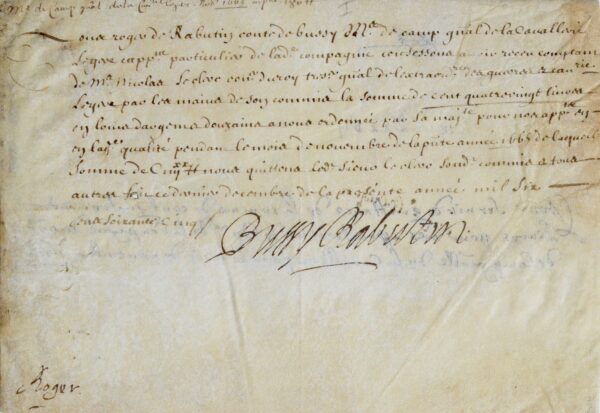 Mre de Camp gnãl de la Cavallerie legere Novbre 1665
Nous roger de Rabutin conte de bussy Mre de camp gnal de la Cavallerie
Legere cappne particulier de lade compagnie confessons avoir receu comptant
de Me Nicolas le clerc conser du roy tresr gnal de lextraordre des guerres et cavrie
Legere par les mains de son commis la somme de cent quatre vingt livres
en louis dargent douzains a nous ordonnée par sa majté pour nos appnts
en lade qualité pendant le mois de novembre de la pnte année 1665 de laquelle
somme de nous quittons led. sieur le clerc sond. commis et tous
autres fait ce dernier decembre de la presente année mil six
cens soixante cinq
Bussy Rabutin
Roger